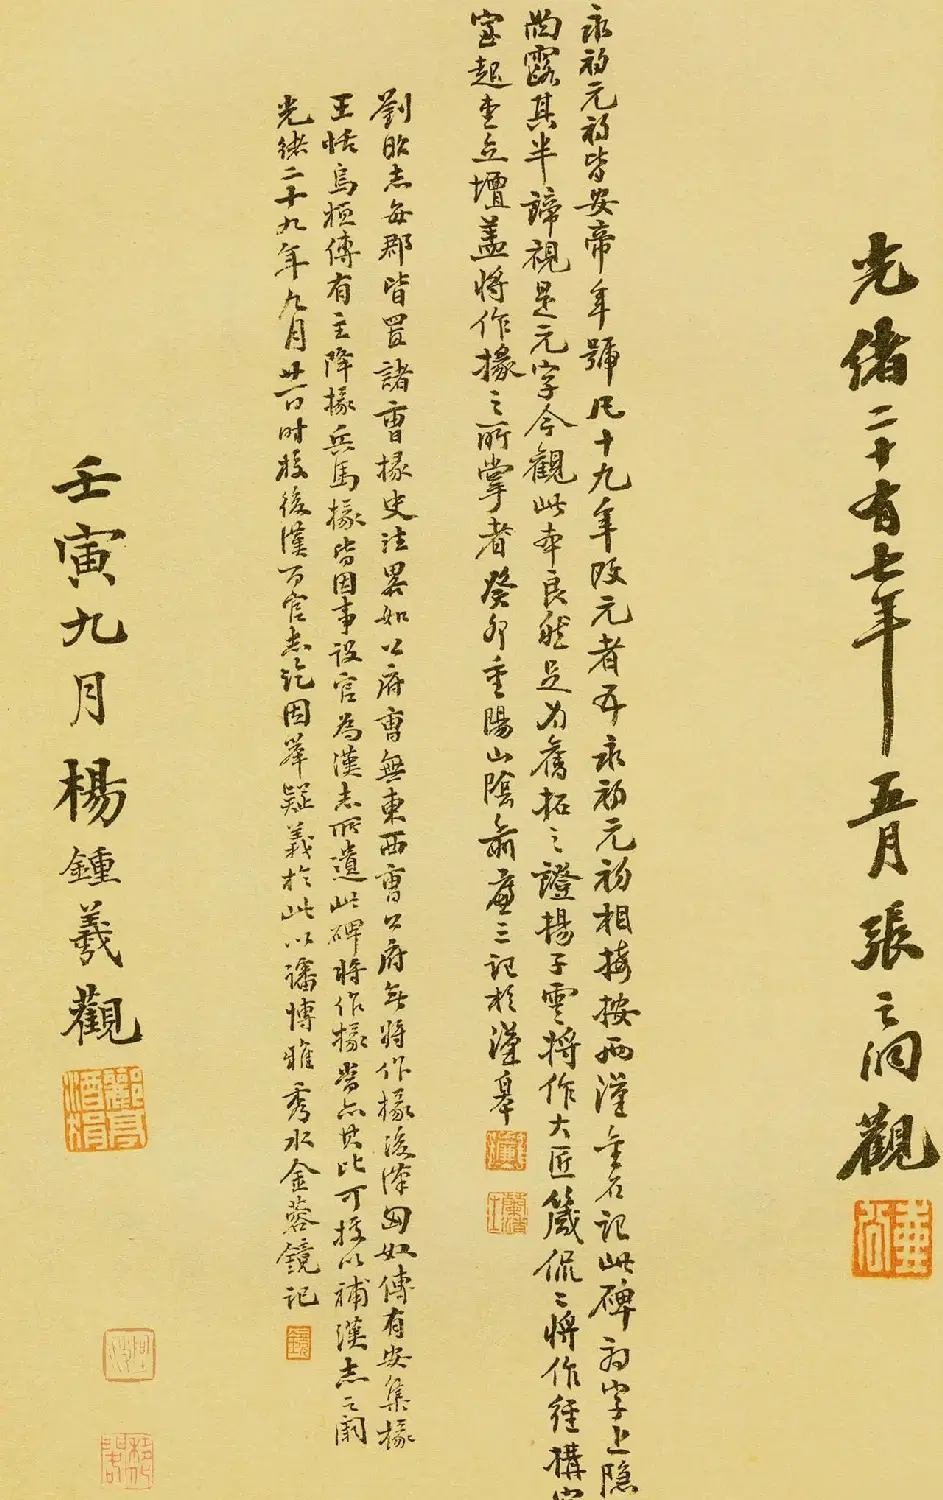 光緒二十有七年五月張之洞觀
永初元初皆安帝年號凡十九年改元者五永初元初相接按兩漢金石記此碑初字上隱
露其半諦視是元字今觀此本良然足為舊拓之證揚子雲將作大匠箴侃侃將作經構宮
室起臺立壇蓋將作掾之所掌者癸卯重陽山陰俞廉三記於漢皋
劉昭志每郡皆置諸曹掾史注略如公府曹無東西曹公府無將作掾後漢匈奴傳有安集掾
王恬烏桓傳有主降掾兵馬掾皆因事設官為漢志所遺此碑將作掾當亦其比可援以補漢志之闕
光緒二十九年九月廿一日時校後漢百官志訖因舉疑義於此以讅博雅秀水金蓉鏡記
壬寅九月楊鍾羲觀